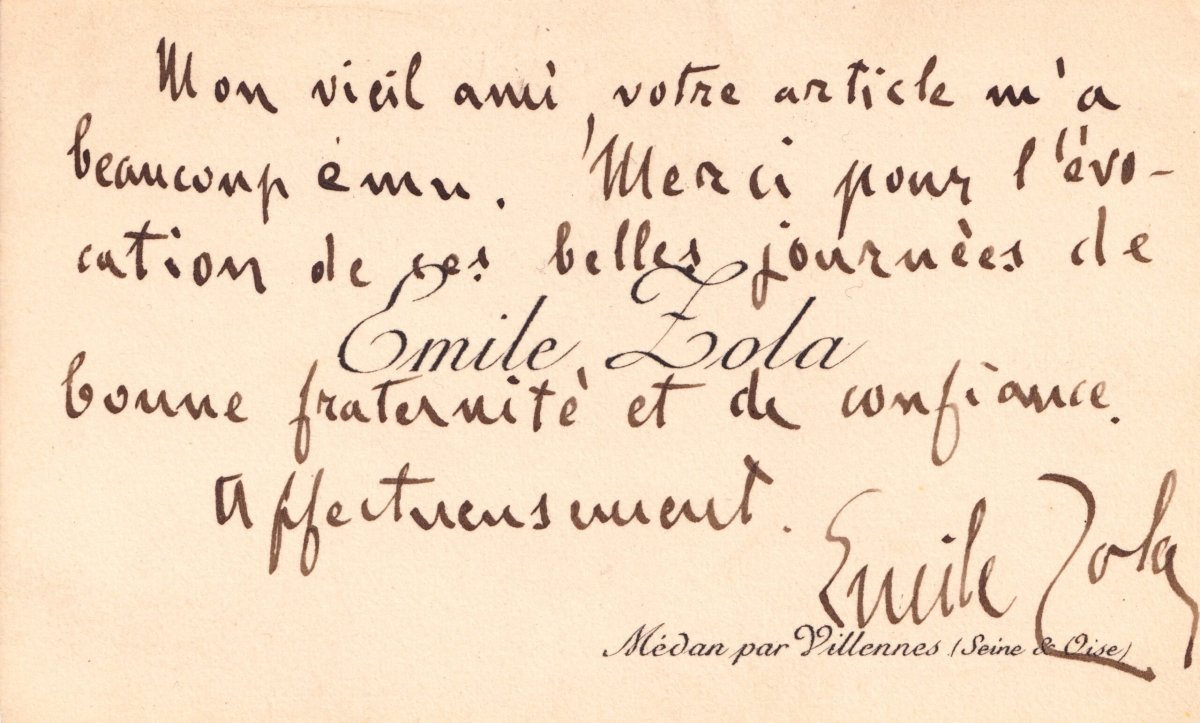 Mon vieil ami, votre article m'a
beaucoup ému. Merci pour l'évo-
cation de ces belles journées de
Emile Zola
bonne fraternité et de confiance.
Affectueusement.
Emile Zola
Médan par Villennes (Seine & Oise)